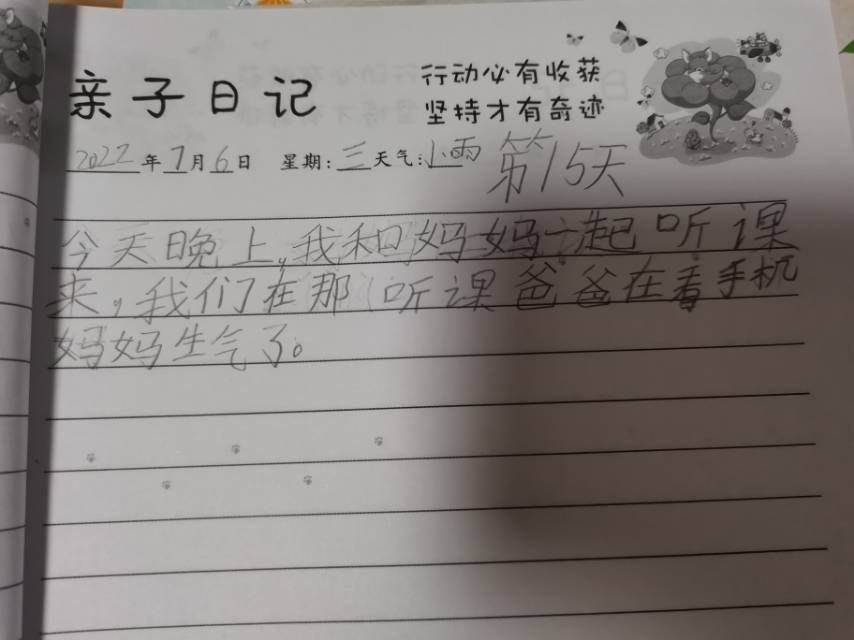 亲子日记
行动必有收获
坚持才有奇迹
2022年7月6日 星期:三天气:小雨 第15天
今天晚上,我和妈妈一起听课
来,我们在那听课爸爸在看手机
妈妈生气了。